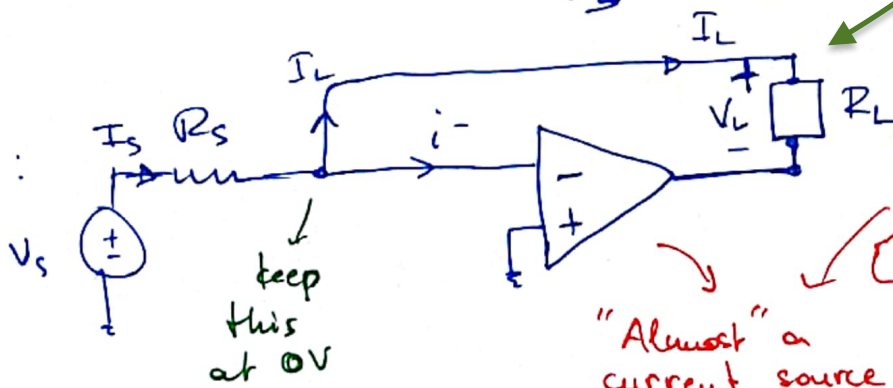 I_L
I_L
I_S R_S
i^-
+
V_L R_L
-
:
-
+
V_S
+
-
keep
this
at 0V
"Almost" a
current source